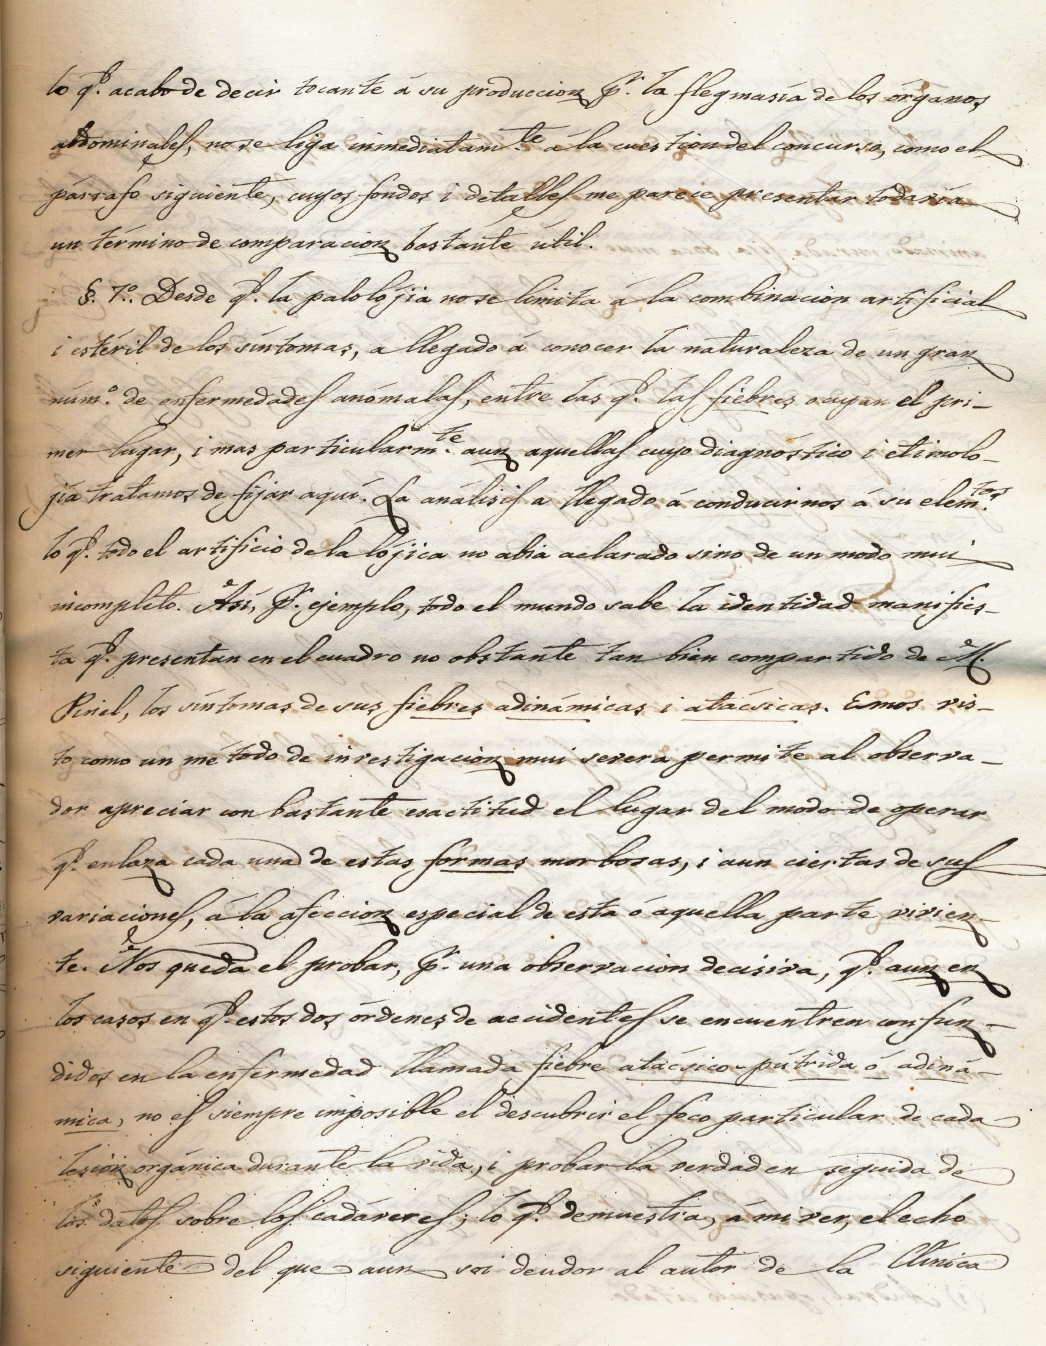 lo q.e acabo de decir tocante á su produccion p.r la flegmasía de los órganos
abdominales, no se liga inmediatam.te á la cuestion del concurso, como el
párrafo siguiente, cuyos fondos i detalles me parece presentar todavía
un término de comparacion bastante útil.
§. 7.º Desde q.e la palolójia no se limita á la combinacion artificial
i estéril de los síntomas, a llegado á conocer la naturaleza de un gran
núm.o de enfermedades anómalas, entre las q.e las fiebres ocupan el pri-
mer lugar, i mas particularm.te aun aquellas cuyo diagnóstico i etimolo-
jía tratamos de fijar aquí. La análisis a llegado á conducirnos á su elem.tos
lo q.e todo el artificio de la lójica no abia aclarado sino de un modo mui
incompleto. Así, p.r ejemplo, todo el mundo sabe la identidad manifies-
ta q.e presentan en el cuadro no obstante tan bien compartido de M.
Pinel, los síntomas de sus fiebres adinámicas i atácsicas. Emos vis-
to como un método de investigacion mui severa permite al observa-
dor apreciar con bastante esactitud el lugar del modo de operar
q.e enlaza cada una de estas formas morbosas, i aun ciertas de sus
variaciones, á la afeccion especial de esta ó aquella parte vivien-
te. Nos queda el probar, p.r una observacion decisiva, q.e aun en
los casos en q.e estos dos órdenes de accidentes se encuentren confun-
didos en la enfermedad llamada fiebre atácsico-pútrida ó adiná-
mica, no es siempre imposible el descubrir el foco particular de cada
lesion orgánica durante la vida, i probar la verdad en seguida de
los datos sobre los cadáveres; lo q.e demuestra, á mi ver, el echo
siguiente del que aun soi deudor al autor de la Clínica